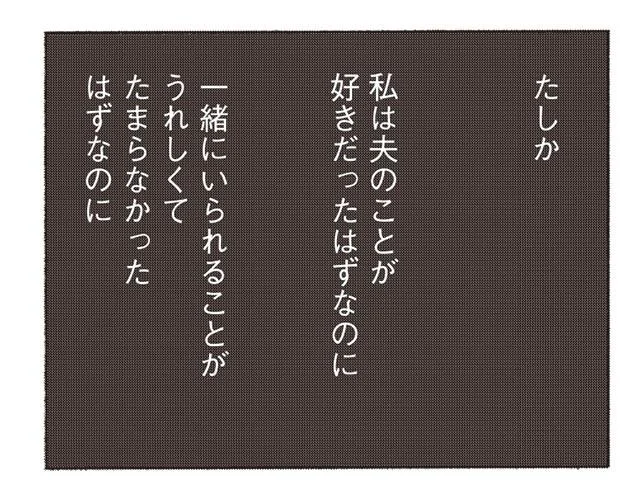 たしか
私は夫のことが
好きだったはずなのに
一緒にいられることが
うれしくて
たまらなかった
はずなのに